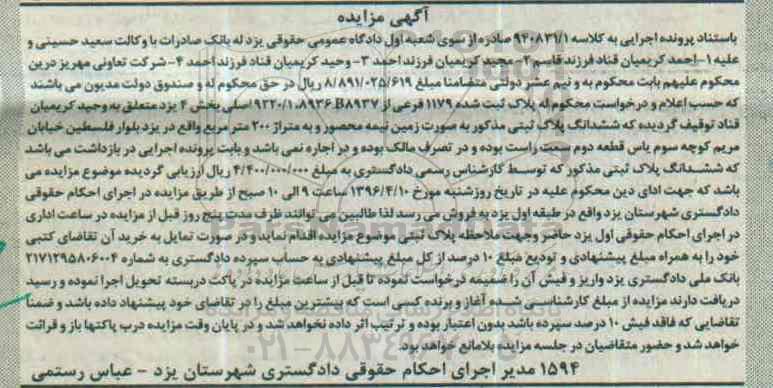 آگهی مزایده
باستناد پرونده اجرایی به کلاسه ۹۴۰۸۳۱/۱ صادره از سوی شعبه اول دادگاه عمومی حقوقی یزد له بانک صادرات با وکالت سعید حسینی و
علیه ۱-احمد کریمیان قناد فرزند قاسم ۲- مجید کریمیان فرزند احمد ۳- وحید کریمیان قناد فرزند احمد ۴- شرکت تعاونی مهریز درین
محکوم علیهم بابت محکوم به و نیم عشر دولتی متضامنا مبلغ ۸/۸۹۱/۰۲۵/۶۱۹ ریال در حق محکوم له و صندوق دولت مدیون می باشند
که حسب اعلام و درخواست محکوم له پلاک ثبت شده ۱۱۷۹ فرعی از ۹۲۲۰/۱۰۸۹۳۶.B۸۹۳۷ اصلی بخش ۴ یزد متعلق به وحید کریمیان
قناد توقیف گردیده که ششدانگ پلاک ثبتی مذکور به صورت زمین نیمه محصور و به متراژ ۲۰۰ متر مربع واقع در یزد بلوار فلسطین خیابان
مریم کوچه سوم یاس قطعه دوم سمت راست بوده و در تصرف مالک بوده و در اجاره نمی باشد و بابت پرونده اجرایی در بازداشت می باشد
که ششدانگ پلاک ثبتی مذکور که توسط کارشناس رسمی دادگستری به مبلغ ۴/۴۰۰/۰۰۰/۰۰۰ ریال ارزیابی گردیده موضوع مزایده می
باشد که جهت ادای دین محکوم علیه در تاریخ روزشنبه مورخ ۱۳۹۶/۴/۱۰ ساعت ۹ الی ۱۰ صبح از طریق مزایده در اجرای احکام حقوقی
دادگستری شهرستان یزد واقع در طبقه اول یزد به فروش می رسد لذا طالبین می توانند ظرف مدت پنج روز قبل از مزایده در ساعت اداری
در اجرای احکام حقوقی اول یزد حاضر وجهت ملاحظه پلاک ثبتی موضوع مزایده اقدام نماید و در صورت تمایل به خرید آن تقاضای کتبی
خود را به همراه مبلغ پیشنهادی و تودیع مبلغ ۱۰ درصد از کل مبلغ پیشنهادی به حساب سپرده دادگستری به شماره ۲۱۷۱۲۹۵۸۰۶۰۰۴
بانک ملی دادگستری یزد واریز و فیش آن را ضمیمه درخواست نموده تا قبل از ساعت مزایده در پاکت دربسته تحویل اجرا نموده و رسید
دریافت دارند مزایده از مبلغ کارشناسی شده آغاز و برنده کسی است که بیشترین مبلغ را در تقاضای خود پیشنهاد داده باشد و ضمنا
تقاضایی که فاقد فیش ۱۰ درصد سپرده باشد بدون اعتبار بوده و ترتیب اثر داده نخواهد شد و در پایان وقت مزایده درب پاکتها باز و قرائت
خواهد شد و حضور متقاضیان در جلسه مزایده بلامانع خواهد بود.
۱۵۹۴ مدیر اجرای احکام حقوقی دادگستری شهرستان یزد - عباس رستمی
۰۲۱-۸۸۳۴۹۶۷۰